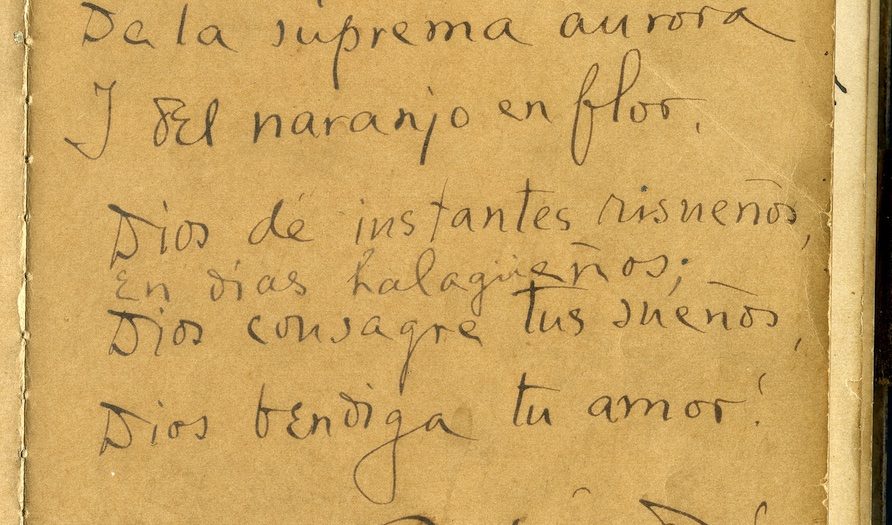 De la suprema aurora
I del naranjo en flor.
Dios dé instantes risueños,
En días halagüeños;
Dios consagre tus sueños,
Dios bendiga tu amor!